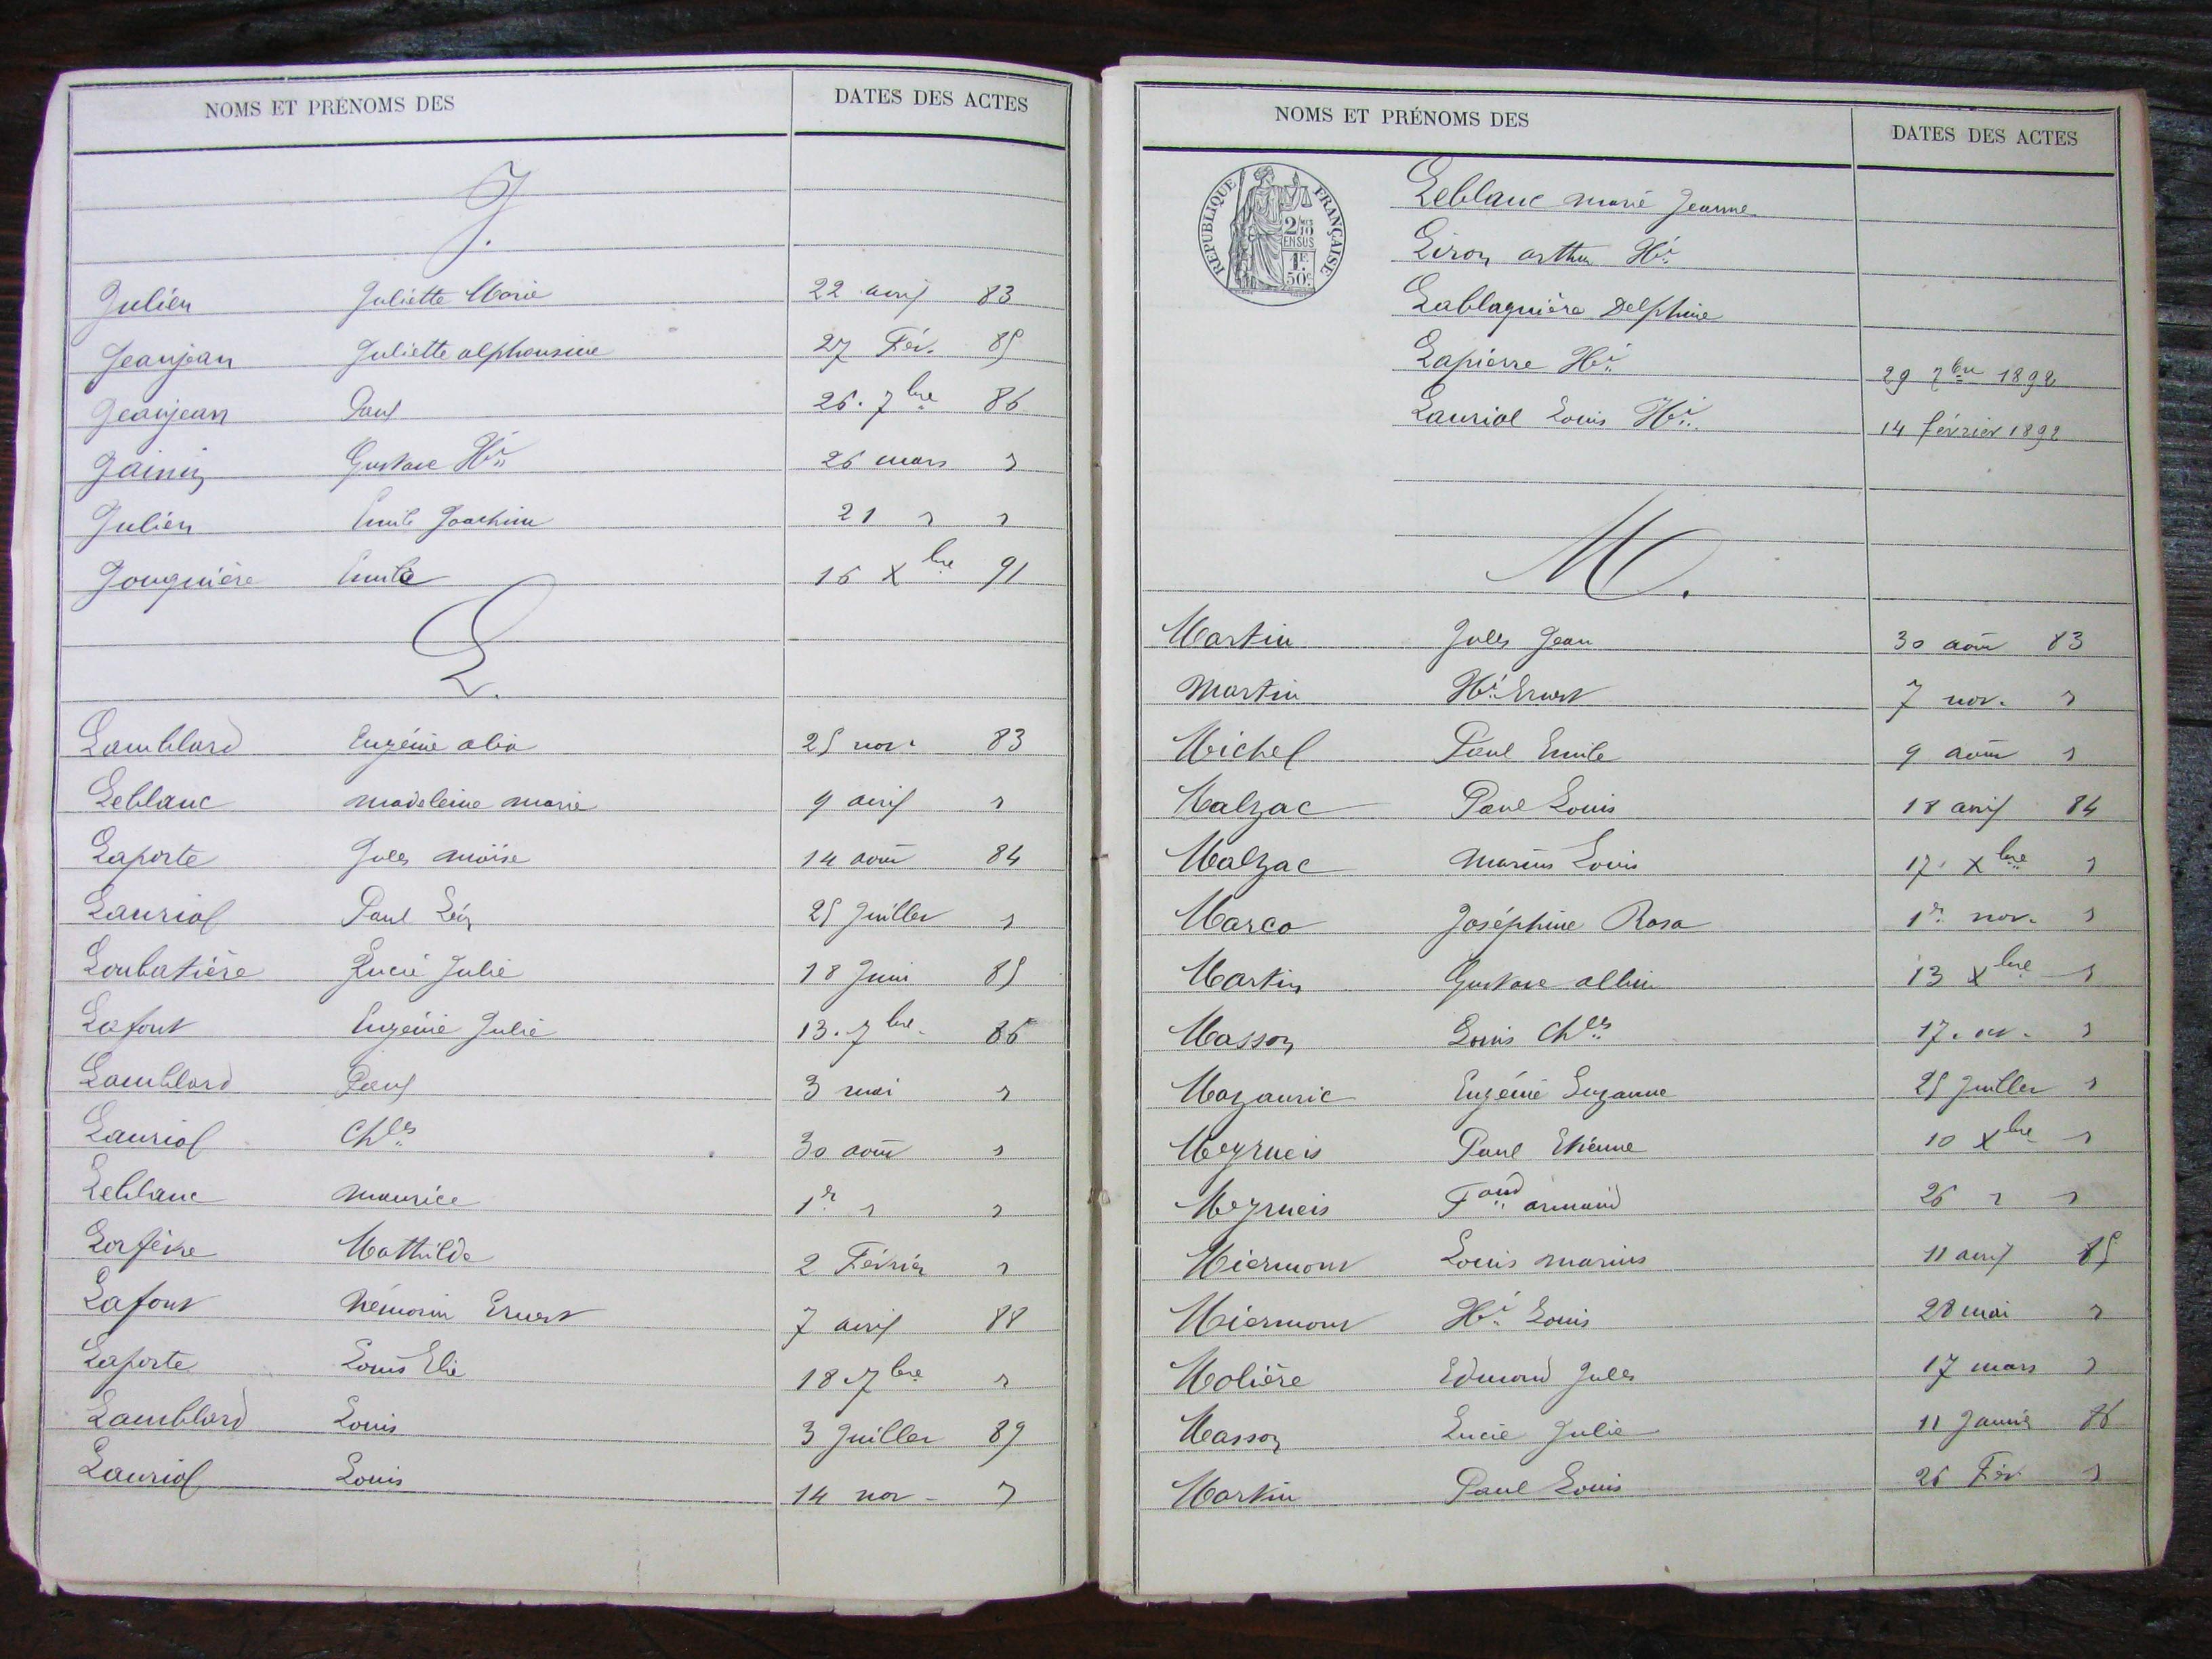 NOMS ET PRÉNOMS DES DATES DES ACTES
J.
Julien Juliette Marie 22 avril 83
Jeanjean Juliette alphonsine 27 Fév. 85
Jeanjean Paul 26. 7bre 86
Gustave Hri 26 mars "
Julien Emile Joachim 21 " "
Jouguière Emile 16 Xbre 91
L.
Lamblard Eugénie 25 nov. 83
Leblanc madeleine marie 9 avril "
Laporte Jules moïse 14 août 84
Lauriol Paul Léon 25 Juillet "
Loubatière Lucie Julie 18 Juin 85
Lafont Eugénie Julie 13. 7bre. 86
Lamblard Paul 3 mai "
Lauriol Chles 30 août "
Leblanc maurice 1er " "
Mathilde 2 Février "
Lafont Némorin Ernest 7 avril 88
Laporte Louis Elie 18 7bre "
Lamblard Louis 3 Juillet 89
Lauriol Louis 14 nov - "
NOMS ET PRÉNOMS DES DATES DES ACTES
RÉPUBLIQUE FRANÇAISE
2/10 EN SUS
1F 50c
Leblanc marie Jeanne
Liron arthur Hri
Lablaquière Delphine
Lapierre Hri 29 7bre 1892
Lauriol Louis Hri 14 février 1892
M.
Martin Jules Jean 30 août 83
Martin Hri Ernest 7 nov. "
Michel Paul Emile 9 août "
Malzac Paul Louis 18 avril 84
Malzac Marius Louis 17. Xbre "
Marco Joséphine Rosa 1er nov. "
Martin Gustave albin 13 Xbre "
Masson Louis Chles 17. oct. "
Mazauric Eugénie Suzanne 25 Juillet "
Meyrueis Paul Etienne 10 Xbre "
Meyrueis Fand armand 26 " "
Miermont Louis marius 11 avril 85
Miermont Hri Louis 28 mai "
Molière Edmond Jules 17 mars "
Masson Lucie Julie 11 Janvier 86
Martin Paul Louis 26 Fév "